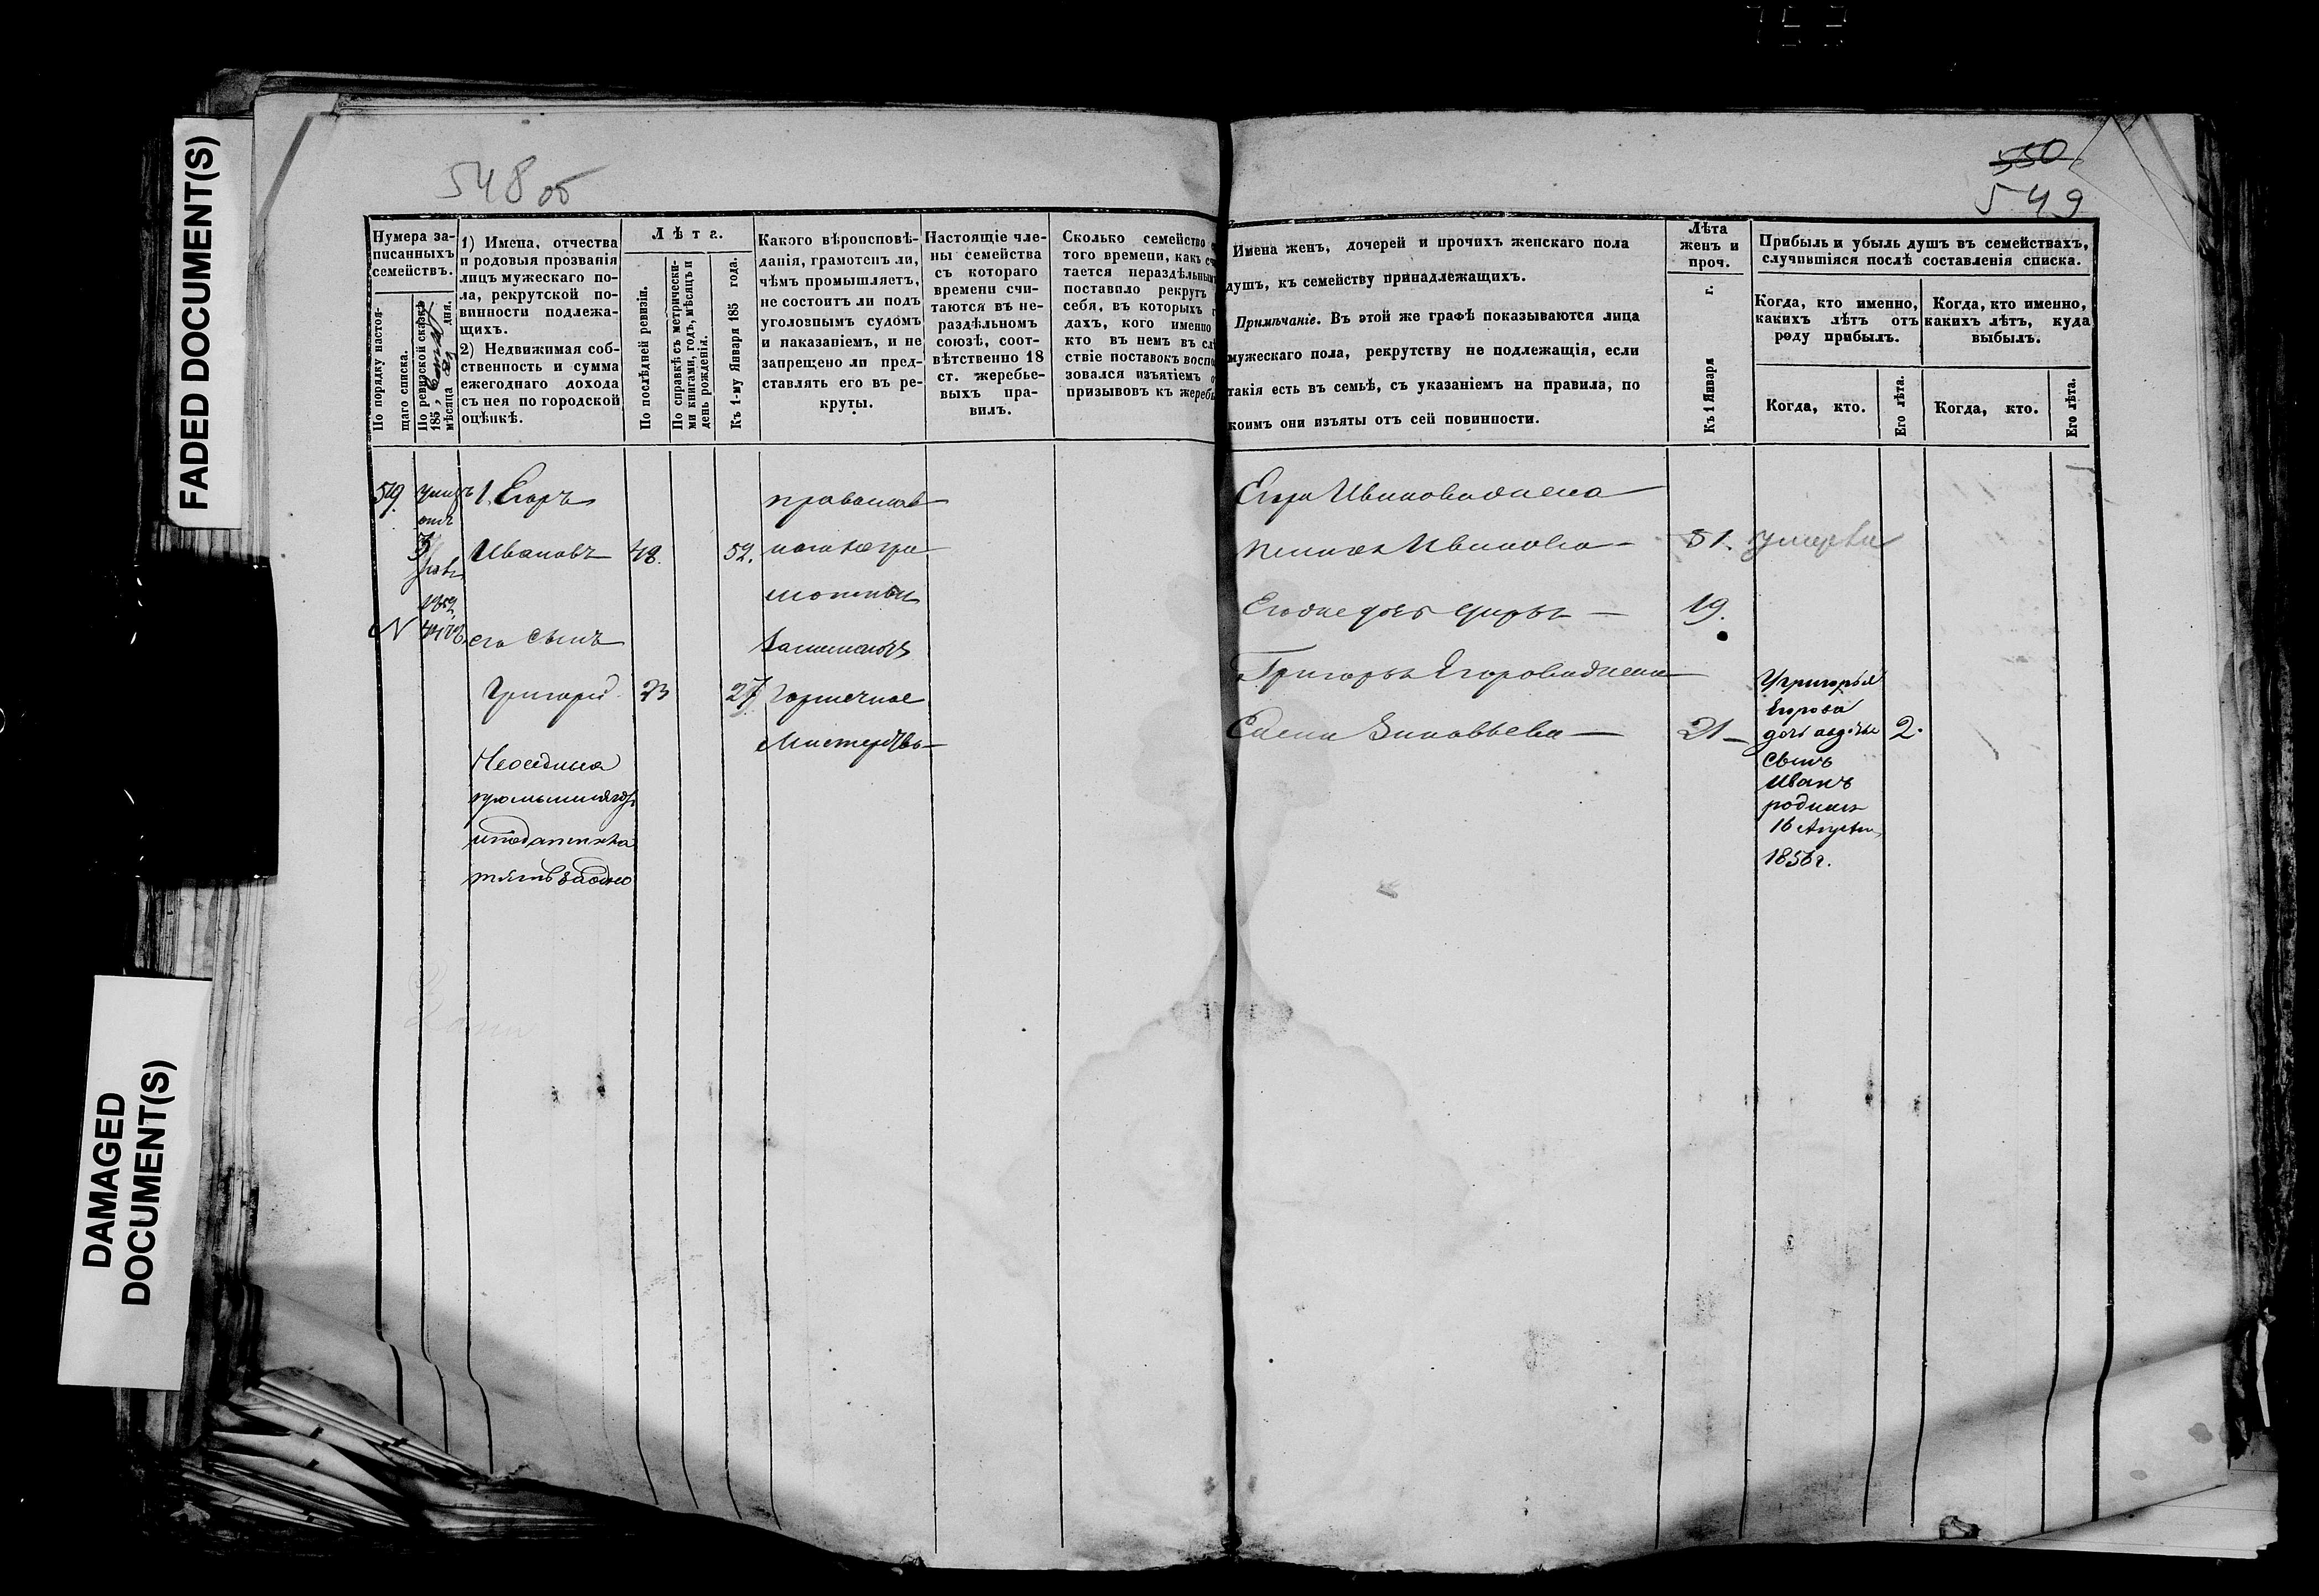 FADED DOCUMENT(S)
DAMAGED
DOCUMENT(S)
548 об
Нумера за-
писанныхъ
семействъ.
По порядку настоя-
щаго списка.
По ревизской сказкѣ
185 , мѣсяца дня.
1) Имена, отчества
и родовыя прозванія
лицъ мужескаго по-
ла, рекрутской по-
винности подлежа-
щихъ.
2) Недвижимая соб-
ственность и сумма
ежегоднаго дохода
съ нея по городской
оцѣнкѣ.
Лѣта.
По послѣдней ревизіи.
По справкѣ съ метрически-
ми книгами, годъ, мѣсяцъ и
день рожденія.
Къ 1-му Января 185 года.
Какого вѣроисповѣ-
данія, грамотенъ ли,
чѣмъ промышляетъ,
не состоитъ ли подъ
уголовнымъ судомъ
и наказаніемъ, и не
запрещено ли пред-
ставлять его въ ре-
круты.
Настоящіе чле-
ны семейства
съ котораго
времени счи-
таются въ не-
раздѣльномъ
союзѣ, соот-
вѣтственно 18
ст. жеребье-
выхъ пра-
вилъ.
Сколько семейство
того времени, какъ
тается нераздѣльнымъ
поставило рекрутъ
себя, въ которыхъ
дахъ, кого именно
кто въ немъ въ
ствіе поставокъ
зовался изъятіемъ
призывовъ къ
519.
1. Егоръ
Ивановъ 48. 52.
1852
его сынъ
Григорій 23 27
Неоседлыя
православ
Горшечное
Мастерство
550
549
Имена женъ, дочерей и прочихъ женскаго пола
душъ, къ семейству принадлежащихъ.
Примѣчаніе. Въ этой же графѣ показываются лица
мужескаго пола, рекрутству не подлежащія, если
такія есть въ семьѣ, съ указаніемъ на правила, по
коимъ они изъяты отъ сей повинности.
Лѣта
женъ и
проч.
Къ 1 Января г.
Прибыль и убыль душъ въ семействахъ,
случившіяся послѣ составленія списка.
Когда, кто именно,
какихъ лѣтъ отъ
роду прибылъ.
Когда, кто именно,
какихъ лѣтъ, куда
выбылъ.
Когда, кто.
Его лѣта.
Когда, кто.
Его лѣта.
Егора Иванова жена
Иванова 51. умерла
Егоже дочь 19.
Григорья Егорова жена
Елена Зиновьева 21
У Григорья
Егорова
дочь 2.
Сынъ
Иванъ
родился
16 Августа
1856 г.